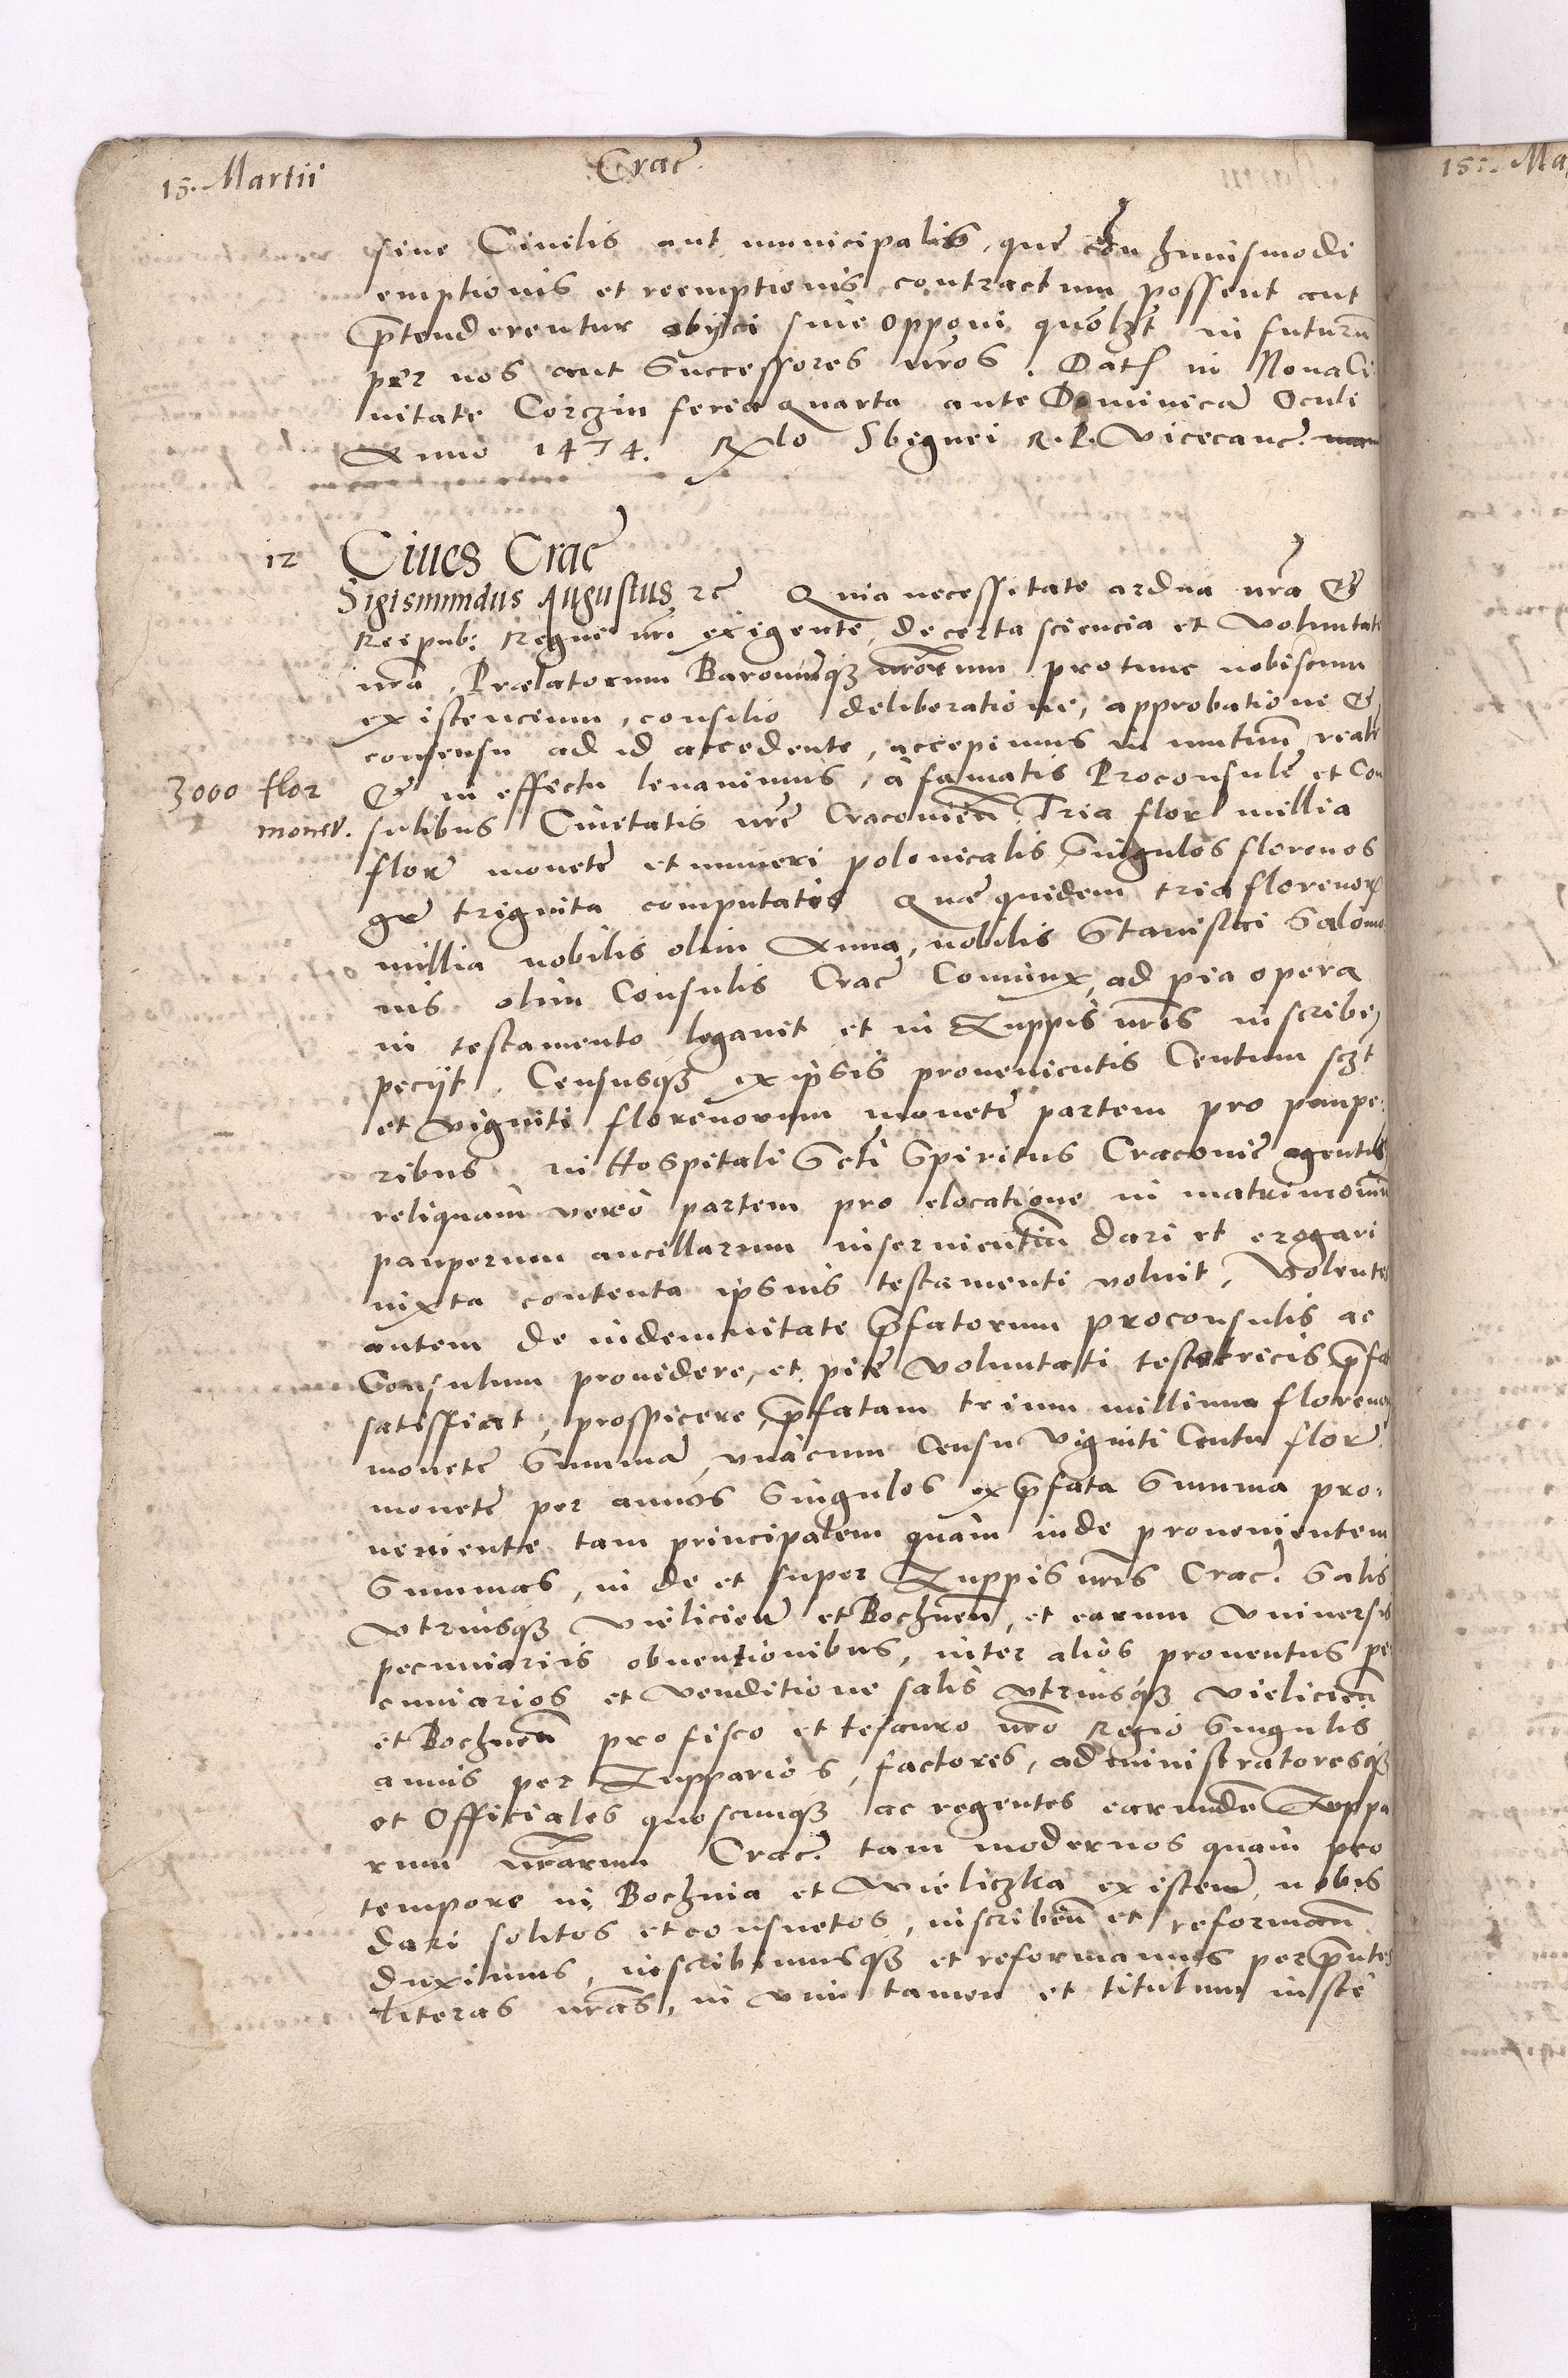 15. Martii Crac̄
siue Ciuilis aut municipalis, que con huiusmodi
emptionis et reemptionis contractum possent aut
p̄tenderentur obijci siue opponi quōlzt in futurū
per nos aut Successores nr̄os. Dat in Noua Ci
uitate Corczin feria Quarta ante Dominicā Oculi
Anno 1474. Rlo Sbignei R. P. Vicecanc̄.
12 Ciues Crac̄
Sigismundus Augustus, rc̄ Quia necessitate ardua nr̄a &
Reipub: Regni nr̄i exigente, de certa sciencia et voluntate
nr̄a, Prælatorum Baronumqꝫ nr̄orum protunc nobiscum
existencium, consilio deliberatione, approbatione &
consensu ad id accedente, accepimus in mutuum realr
3000 flor & in effectu leuauimus, à famatis Proconsule et Con
monet. sulibus Ciuitatis nr̄e Cracouien̄. Tria flor millia
flor monetę et numeri polonicalis, Singulos florenos
gr̄ triginta computatis Quæ quidem tria florenorꝝ
millia nobilis olim Anna, nobilis Stanislai Salomo
nis olim Consulis Crac̄ Coniunx, ad pia opera
in testamento legauit et in Zuppis nr̄is inscribe
pecijt. Censusqꝫ ex ipsis prouenientis Centum sczt
et viginti florenorum monetę partem pro paupe:
ribus in Hospitali Scti Spiritus Cracouię agentib
reliquam verò partem pro elocatione in matrimoniū
pauperum ancillarum inseruientiū dari et erogari
iuxta contenta ipsius testamenti voluit. Volentes
autem de indemnitate p̄fatorum proconsulis ac
Consulum prouidere, et pię voluntati testatricis p̄fa
satisfiat, prospicere, p̄fatam trium millium floreno
monetę Summā, vnàcum Censu viginti Centū flor
monetę per annos Singulos ex p̄fata Summa pro:
ueniente tam principalem quàm inde prouenientem
Summas, in de et super Zuppis nr̄is Crac̄. Salis
vtriusqꝫ Vielicien̄ et Bochnen̄, et earum vniuersis
pecuniariis obuentionibus, inter alios prouentus pe
cuniarios et venditione salis vtriusqꝫ vielicien̄
et Bochnen̄ pro fisco et tesauro nr̄o Regio Singulis
annis per Zupparios, factores, administratoresqꝫ
et Officiales quoscunqꝫ ac regentes earundē Zuppa
rum nr̄arum Crac̄. tam modernos quàm pro
tempore in Bochnia et Wieliczka existen̄, nobis
dari solitos et consuetos, inscriben̄ et reforman̄
duximus, inscribimusqꝫ et reformamus per p̄ntes
literas nr̄as, in vim tamen et titulum iuste
15. Ma